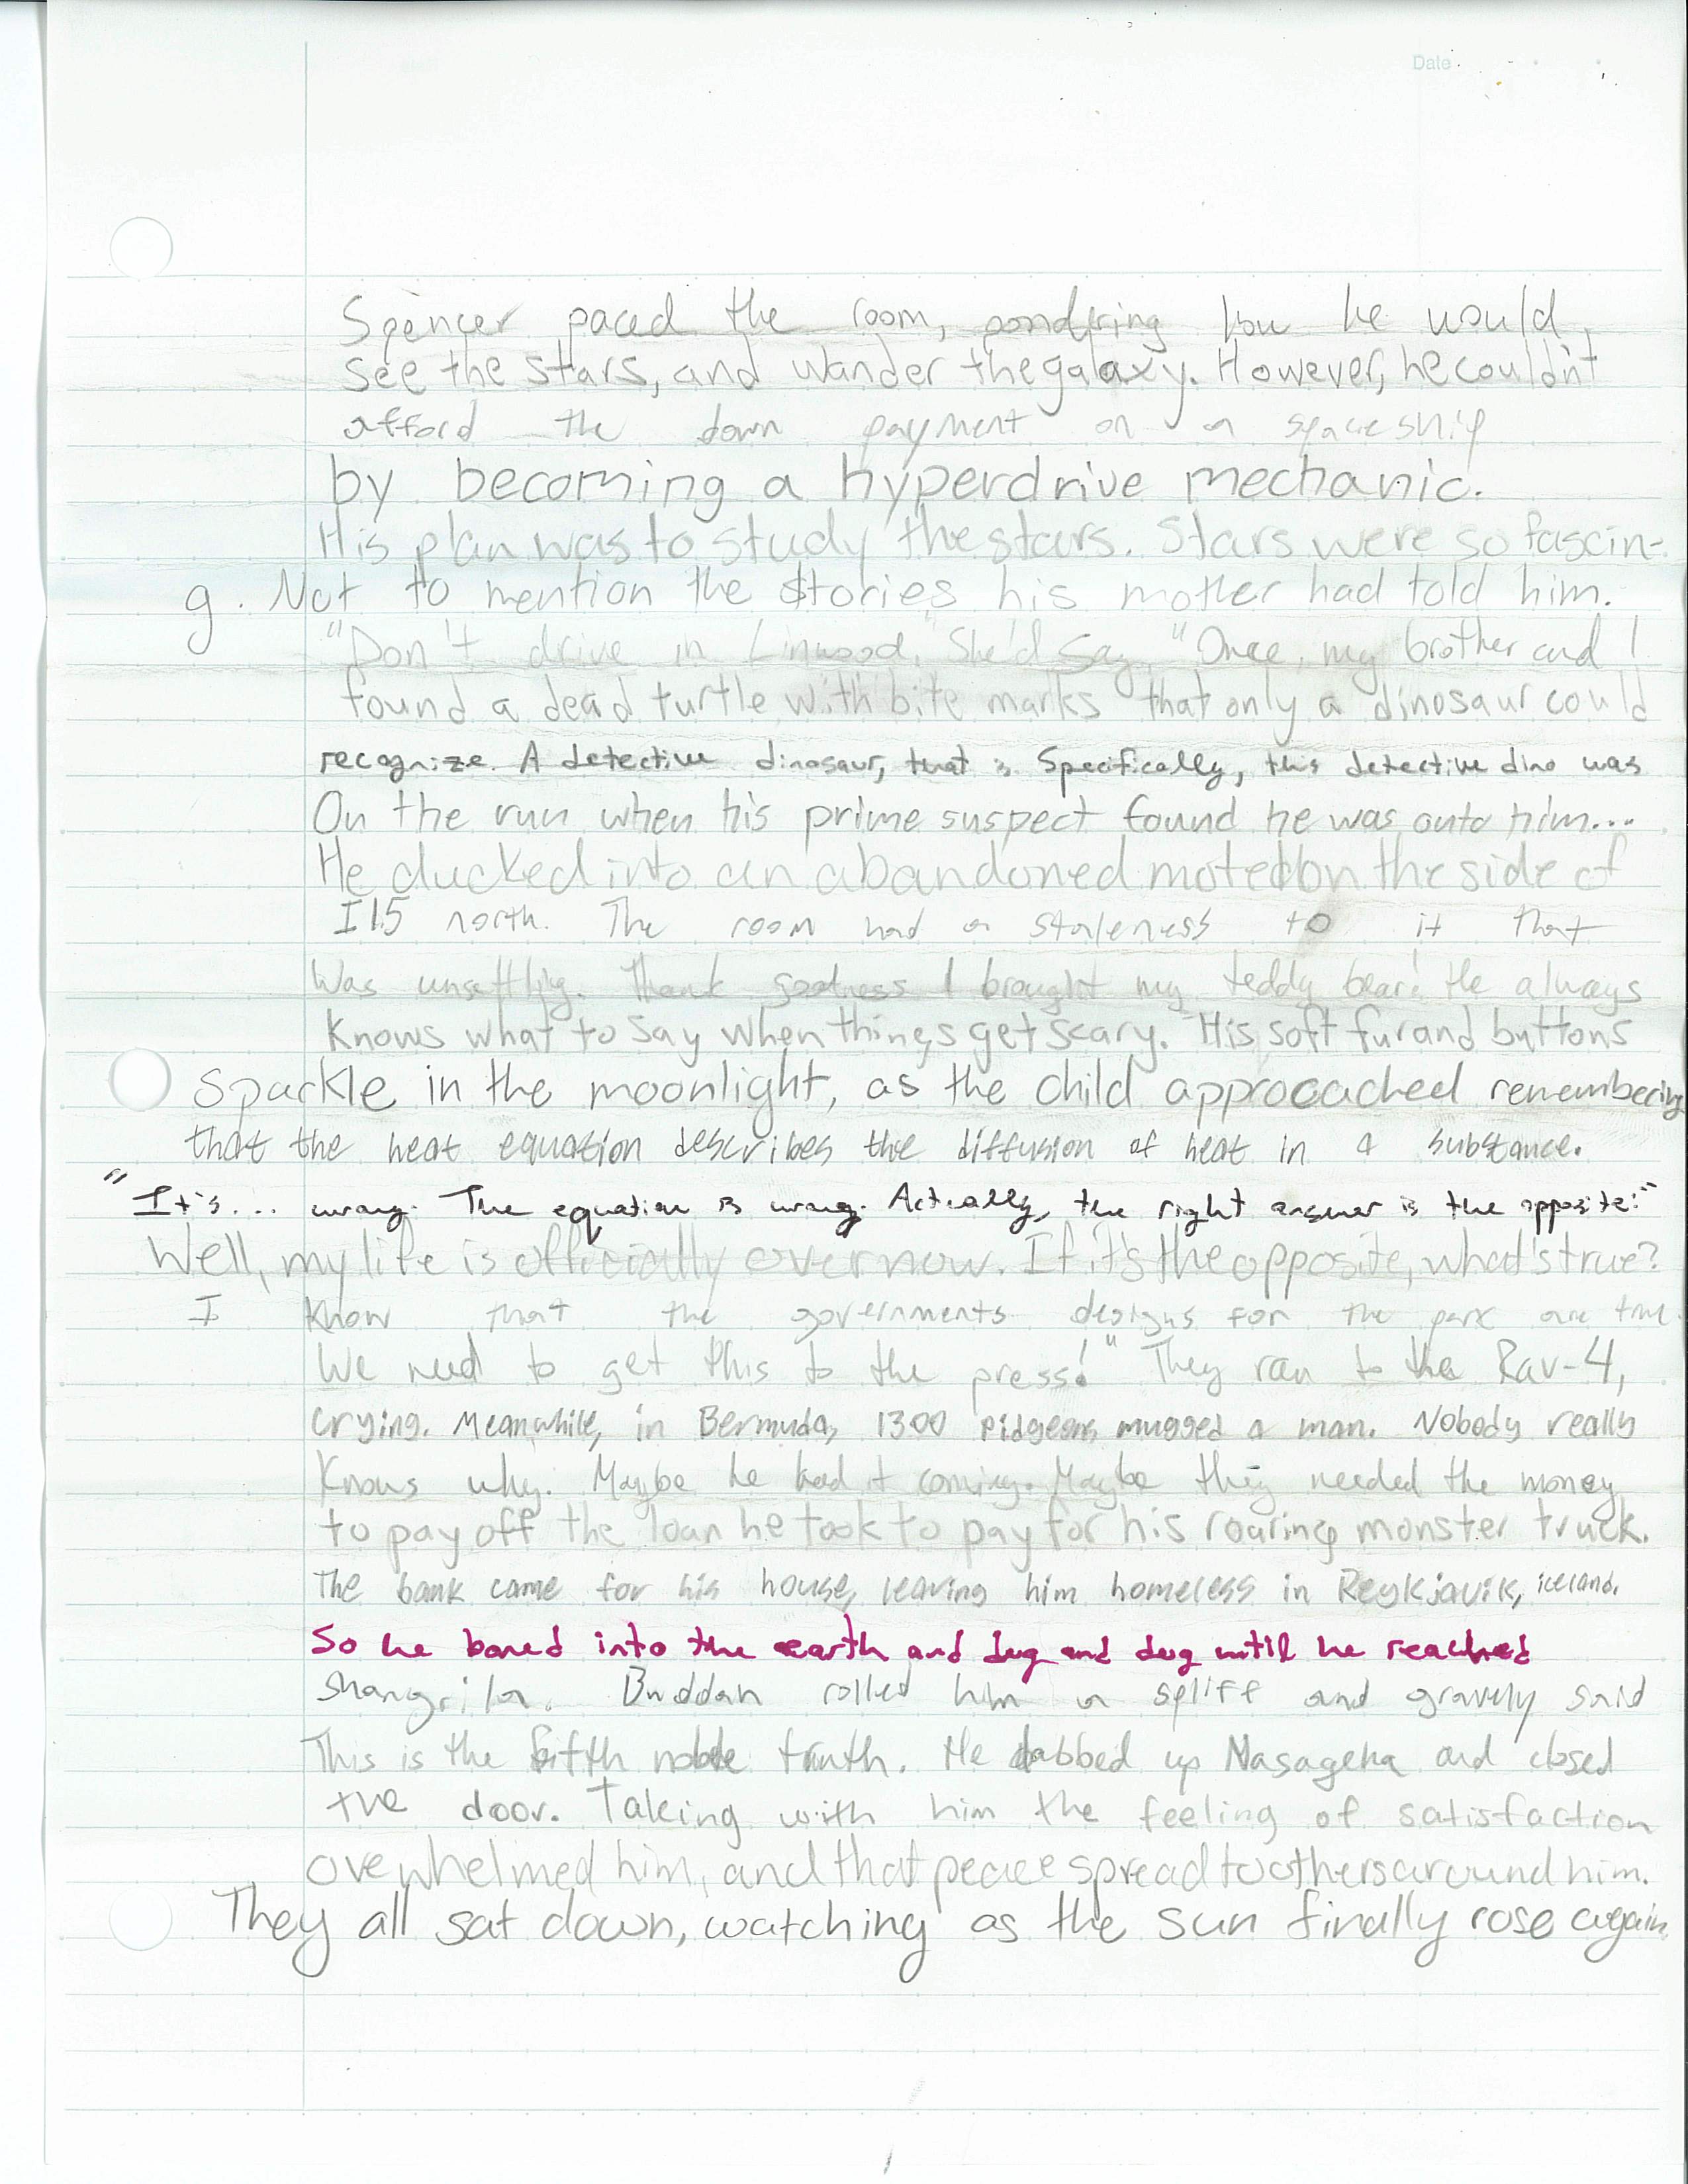 Date
Spencer paced the room, pondering how he would
see the stars, and wander the galaxy. However, he couldn't
afford the down payment on a spaceship
by becoming a hyperdrive mechanic.
His plan was to study the stars. Stars were so fascin-
g. Not to mention the stories his mother had told him.
"Don't drive in Linwood," She'd say, "Once, my brother and I
found a dead turtle with bite marks that only a dinosaur could
recognize. A detective dinosaur, that is. Specifically, this detective dino was
On the run when his prime suspect found he was onto him...
He ducked into an abandoned motel on the side of
I15 north. The room had a staleness to it that
Was unsettling. Thank goodness I brought my teddy bear! He always
knows what to say when things get scary." His soft fur and buttons
Sparkle in the moonlight, as the child approcached remembering
that the heat equation describes the diffusion of heat in a substance.
"It's... wrong. The equation is wrong. Actually, the right answer is the opposite!"
Well, my life is officially over now. If it's the opposite, what's true?
I know that the governments designs for the park are true.
We need to get this to the press!" They ran to the Rav-4,
crying. Meanwhile, in Bermuda, 1300 pidgeons mugged a man. Nobody really
Knows why. Maybe he had it coming. Maybe they needed the money
to pay off the loan he took to pay for his roaring monster truck.
The bank came for his house, leaving him homeless in Reykjavik, iceland.
So he bored into the earth and dug and dug until he reached
Shangri la. Buddah rolled him a spliff and gravely said
This is the fifth noble truth. He dabbed up Nasageha and closed
the door. Taking with him the feeling of satisfaction
ovewhelmed him, and that peace spread to others around him.
They all sat down, watching as the sun finally rose again.